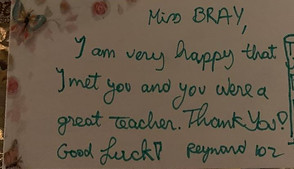 Miss BRAY,
I am very happy that
I met you and you were a
great teacher. Thank You!
Good Luck! Reymond 102